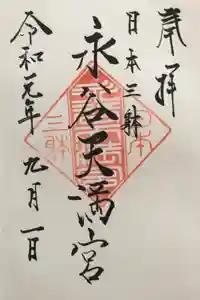 奉拝
日本三躰
永谷天満宮
令和元年 九月一日
日本
三躰